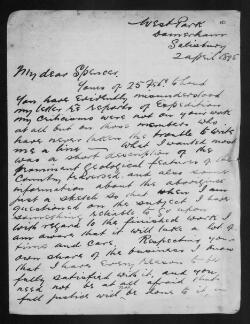 West Park
Damerham
Salisbury
2 April 1895
My dear Spencer,
Yours of 25 Feb. to hand
You have evidently misunderstood
my letter re reports of Expedition
my criticisms were not on your work
at all but on those members who
have never taken the trouble to write
me a line — What I wanted most
was a short description of the
prominent geological features of the
Country traversed and also some
information about the aborigines
just a sketch so that when I am
questioned on the subject I have
something reliable to go upon.
With regard to the finished work I
am aware that it will take a lot of
time and care. Respecting your
own share of the business I know
that I have every reason to be
fully satisfied with it, and you
need not be at all afraid that
full justice will be done to it, in